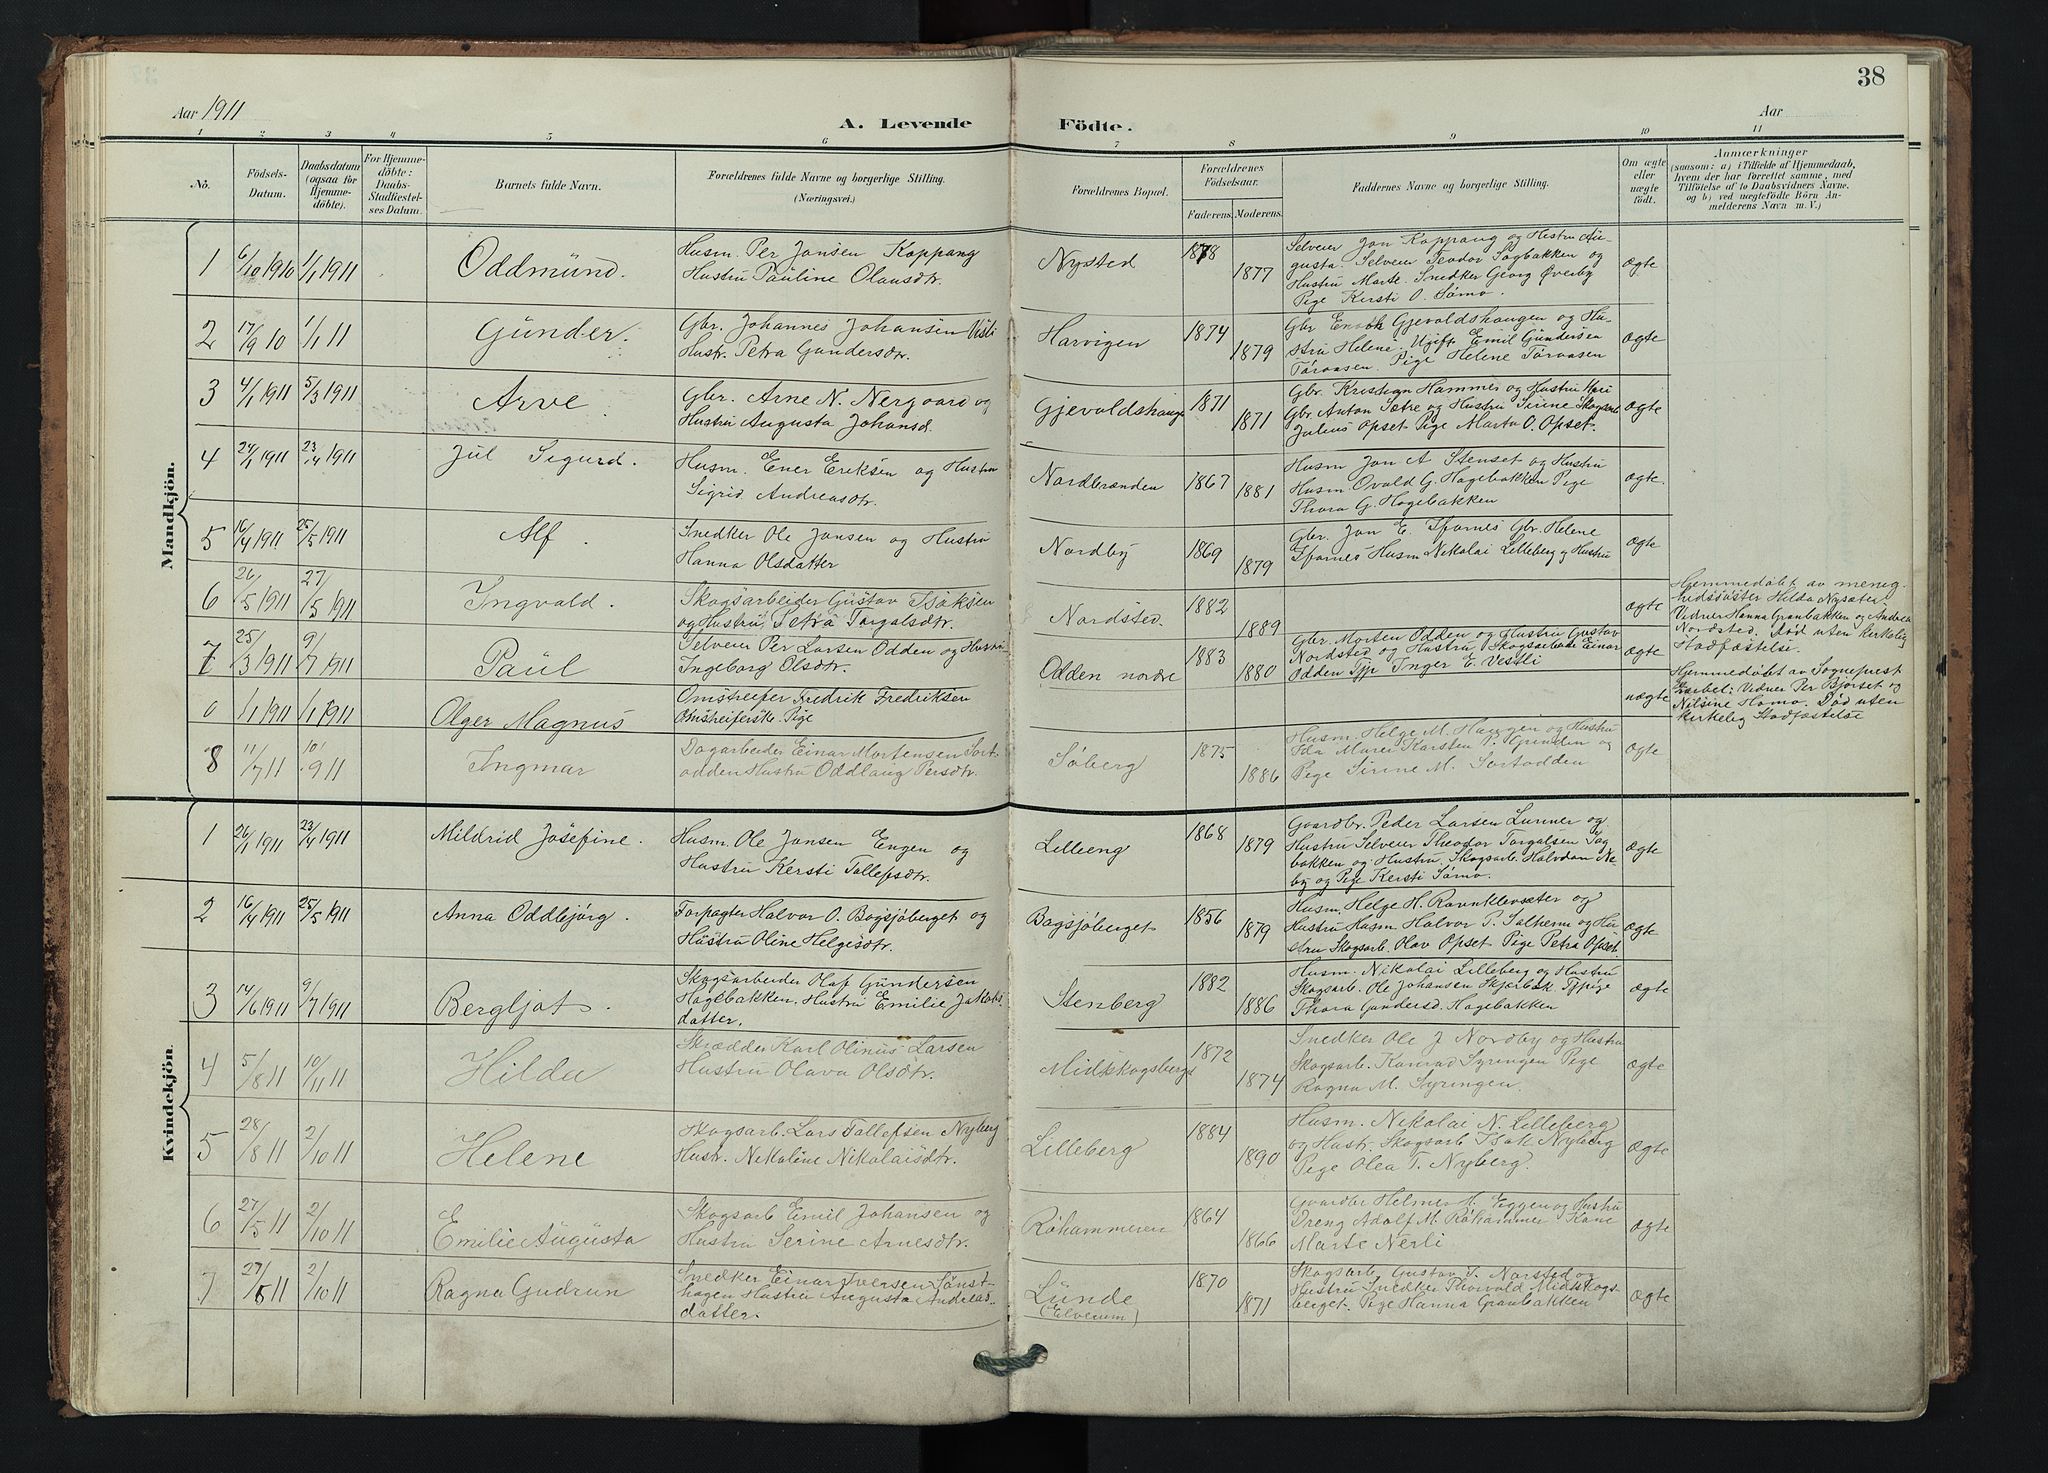 38
Aar 1911
A. Levende Födte.
Aar
1 2 3 4 5 6 7 8 9 10 11
No.
Födsels-Datum.
Daabsdatum (ogsaa for Hjemmedöbte).
For Hjemmedöbte: Daabs-Stadfæstelses Datum.
Barnets fulde Navn.
Forældrenes fulde Navne og borgerlige Stilling.
(Næringsvei.)
Forældrenes Bopæl.
Forældrenes Födselsaar.
Faderens. Moderens.
Faddernes Navne og borgerlige Stilling.
Om ægte eller uægte födt.
Anmærkninger
(saasom: a) i Tilfælde af Hjemmedaab, hvem der har forrettet samme, med Tilföielse af to Daabsvidners Navne. og b) ved uægtefödte Börn Anmelderens Navn m. V.)
Mandkjön.
1 6/10 1910 1/1 1911 Oddmünd.
Husm. Per Jansen Koppang
Hustru Pauline Olausdtr.
Nysted 1878 1877
Selveier Jon Koppang og Hustru Au-
gusta. Selveier Teodor Sagbakken og
Hustru Marte. Snedker Georg Øverby
Pige Kersti O. Sømo.
ægte
2 17/9 10 1/1 11 Günder.
Gbr. Johannes Johansen Vestli
Hustr. Petra Gundersdtr.
Harvigen 1874 1879
Gbr Enok Gjevaldshaugen og Hu-
stru Helene. Ugift Emil Gundersen
Töraasen. Pige Helene Töraasen
ægte
3 4/1 1911 5/3 1911 Arve.
Gbr. Arne N. Nergaard og
Hustru Augusta Johansd.
Gjevaldshaug 1871 1871
Gbr. Kristian Hammer og Hustru Mari
Gbr. Anton Sætre og Hustru Sirine Skogsarb.
Julius Opset Pige Marta O. Opset.
ægte
4 24/1 1911 23/4 1911 Jul Sigurd.
Husm. Ener Eriksen og Hustru
Sigrid Andreasdtr.
Nordbrænden 1867 1881
Husm Jon A Stenset og Hustru
Husm Ovald G. Hagebakken Pige
Thora G. Hagebakken
ægte.
5 16/4 1911 25/5 1911 Alf.
Snedker Ole Jansen og Hustru
Hanna Olsdatter
Nordby 1869 1879
Gbr. Jon E. Tfornes Gbr. Helene
Tfornes Husm Nikolai Lilleberg og Hustru
ægte
6 26/5 1911 27/5 1911 Ingvald.
Skogsarbeider Gustav Isaksen
og Hustru Petra Torgalsdtr.
Nordsted. 1882 1889
ægte
Hjemmedøbt av menig-
hedssøster Hilda Nysæter
Vidner Hanna Granbakken og Andrea
Nordsted. Død uten kirkelig
Stadfæstelse.
7 25/3 1911 9/7 1911 Paul
Selveier Per Larsen Odden og Hustru
Ingeborg Olsdtr.
Odden nordre 1883 1880
Gbr. Morten Odden og Hustru Gustav
Nordsted og Hustru Skogsarbeide Einar
Odden Inger E. Vestli
ægte
0 1/1 1911 1/1 1911 Olger Magnus
Omstreifer Fredrik Fredriksen
Omstreiferske. Pige
uægte
Hjemmedøbt av Sogneprest
Vidner Per Bjørset og
Nilsine Homo. Død uten
kirkelig Stadfæstelse
8 11/7 11 10/9 11 Ingmar
Dagarbeider Einar Mortensen Sort-
odden Hustru Oddlaug Persdtr.
Søberg 1875 1886
Husm. Helge M. Haugen og Hustru
Ida Marei Karsten P. Grinden og
Pige Sirine M. Sortodden
ægte
Kvindekjön.
1 26/1 1911 23/4 1911 Mildrid Josefine.
Husm. Ole Jansen Engen og
Hustru Kersti Tallefsdtr.
Lilleeng 1868 1879
Gaardbr. Peder Larsen Lunner og
Hustru Selveier Theodor Torgalsen Sag
bakken og Hustru, Skogsarb. Halvdan Ne-
by og Pige Kersti Sømo.
ægte
2 16/4 1911 25/5 1911 Anna Oddbjørg.
Forpagter Halvor O. Bagsjøberget og
Hustru Oline Helgesdtr.
Bagsjøberget 1856 1879
Husm. Helge H. Ravnklevsæter og
Hustru Husm Halvor P. Salhem og Hu-
stru Skogsarb. Olav Opset Pige Petra Opset.
ægte
3 14/6 1911 9/7 1911 Bergljot.
Skogsarbeider Olaf Gündersen
Hagebakken. Hustru Emilie Jakobs-
datter.
Stenberg 1882 1886
Husm. Nikolai Lilleberg og Hustru
Skogsarb. Ole Johansen Skjerbæk Pige
Thora Gundersd. Hagebakken
ægte
4 5/8 11 10/11 11 Hilda
Skrædder Karl Olinus Larsen
Hustru Olava Olsdtr.
Midtskogsberget 1872 1874
Snedker Ole J Nordby og Hustru
Skogsarb. Konrad Syringen Pige
Ragna M. Syringen.
ægte
5 28/8 11 2/10 11 Helene
Skogsarb. Lars Tallefsen Nyberg
Hustr. Nekoline Nikolaisdtr.
Lilleberg 1884 1890
Husm. Nikolai N. Lilleberg
og Hustr. Skogsarb Isak Nyberg
Pige Olea T. Nyberg.
ægte
6 27/5 11 2/10 11 Emilie Augusta
Skogsarb Emil Johansen og
Hustru Serine Arnesdtr.
Røhammeren 1864 1866
Gaardbr Helmer H. Eggen og Hustru
Dreng Adolf M. Røhammer Kone
Marte Nerli
ægte
7 27/5 11 2/10 11 Ragna Gudrun
Snedker Einar Iversen Sønst-
hagen Hustru Augusta Andreas-
datter.
Lünde
(Elverum)
1870 1871
Skogsarb Gustav I. Norsted og
Hustru Snedker Thorvald Midtskogs-
berget. Pige Hanna Granbakken
ægte